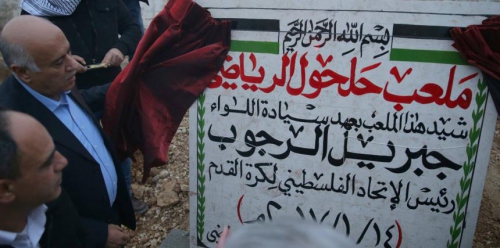 بسم الله الرحمن الرحيم
ملعب حلحول الرياضي
شيد هذا الملعب بعهد سيادة اللواء
جبريل الرجوب
رئيس الإتحاد الفلسطيني لكرة القدم
٢٠١٧/١/١٤م